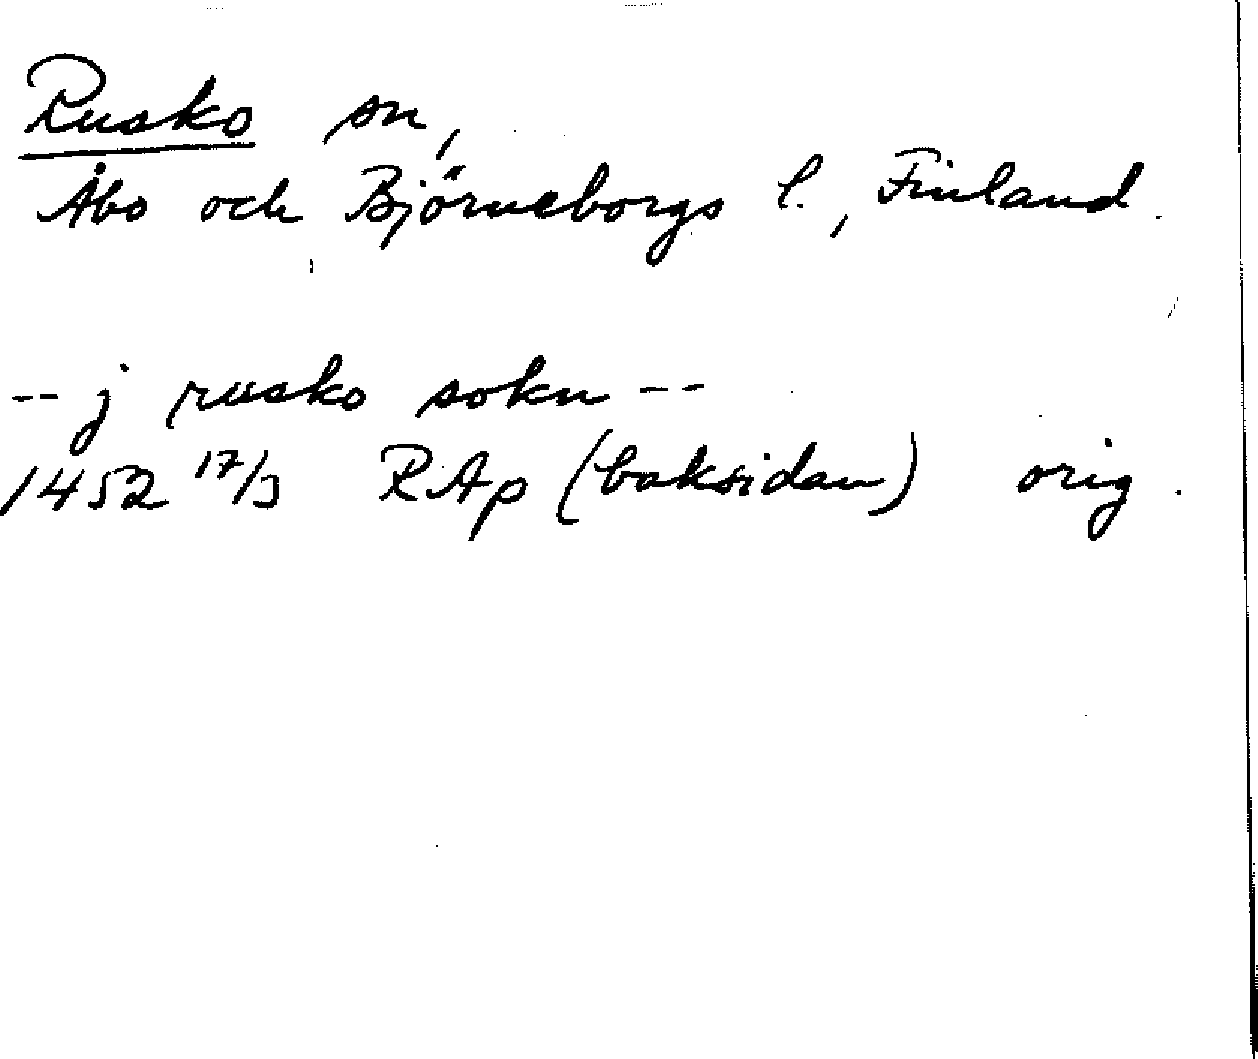 Rusko sn,
Åbo och Björneborgs l., Finland.
-- j rusko sokn --
1452 17/3 RAp (baksidan) orig.